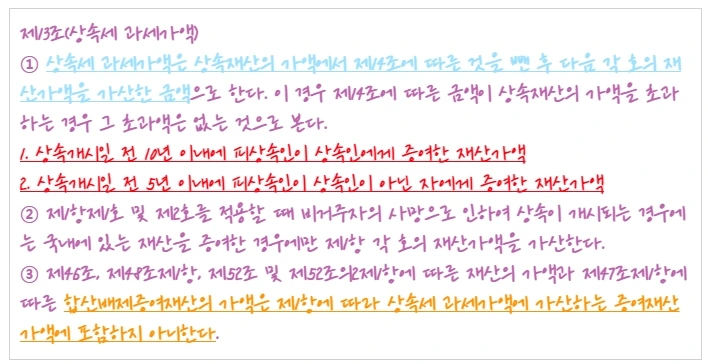 제13조(상속세 과세가액)
① 상속세 과세가액은 상속재산의 가액에서 제14조에 따른 것을 뺀 후 다음 각 호의 재
산가액을 가산한 금액으로 한다. 이 경우 제14조에 따른 금액이 상속재산의 가액을 초과
하는 경우 그 초과액은 없는 것으로 본다.
1. 상속개시일 전 10년 이내에 피상속인이 상속인에게 증여한 재산가액
2. 상속개시일 전 5년 이내에 피상속인이 상속인이 아닌 자에게 증여한 재산가액
② 제1항제1호 및 제2호를 적용할 때 비거주자의 사망으로 인하여 상속이 개시되는 경우에
는 국내에 있는 재산을 증여한 경우에만 제1항 각 호의 재산가액을 가산한다.
③ 제46조, 제48조제1항, 제52조 및 제52조의2제1항에 따른 재산의 가액과 제47조제1항에
따른 합산배제증여재산의 가액은 제1항에 따라 상속세 과세가액에 가산하는 증여재산
가액에 포함하지 아니한다.